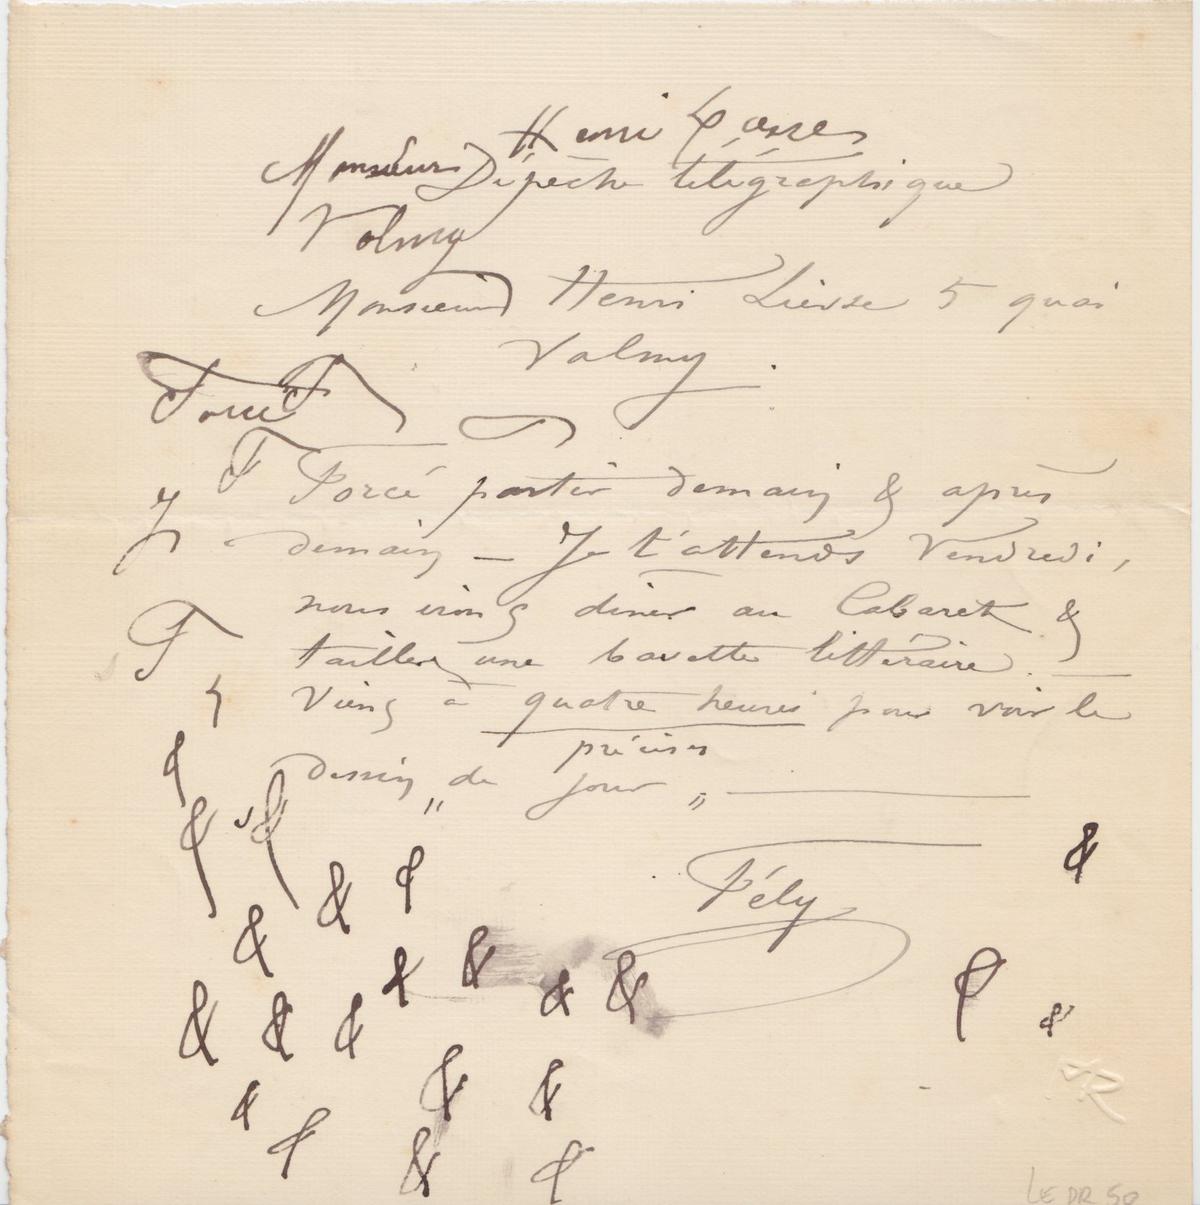 Henri
Monsieur Dépêche télégraphique
Valmy
Monsieur Henri Lièvre 5 quai
Valmy.
Forcé F
F Forcé partir demain & après
J demain — Je t'attends Vendredi,
nous irons diner au Cabaret &
F tailler une bavette littéraire. —
Viens à quatre heures pour voir le
précises
dessin "de jour" —
& & & & &
Fély
&
& & & & & &
& & & &
& & & &
& &
LEPR 50